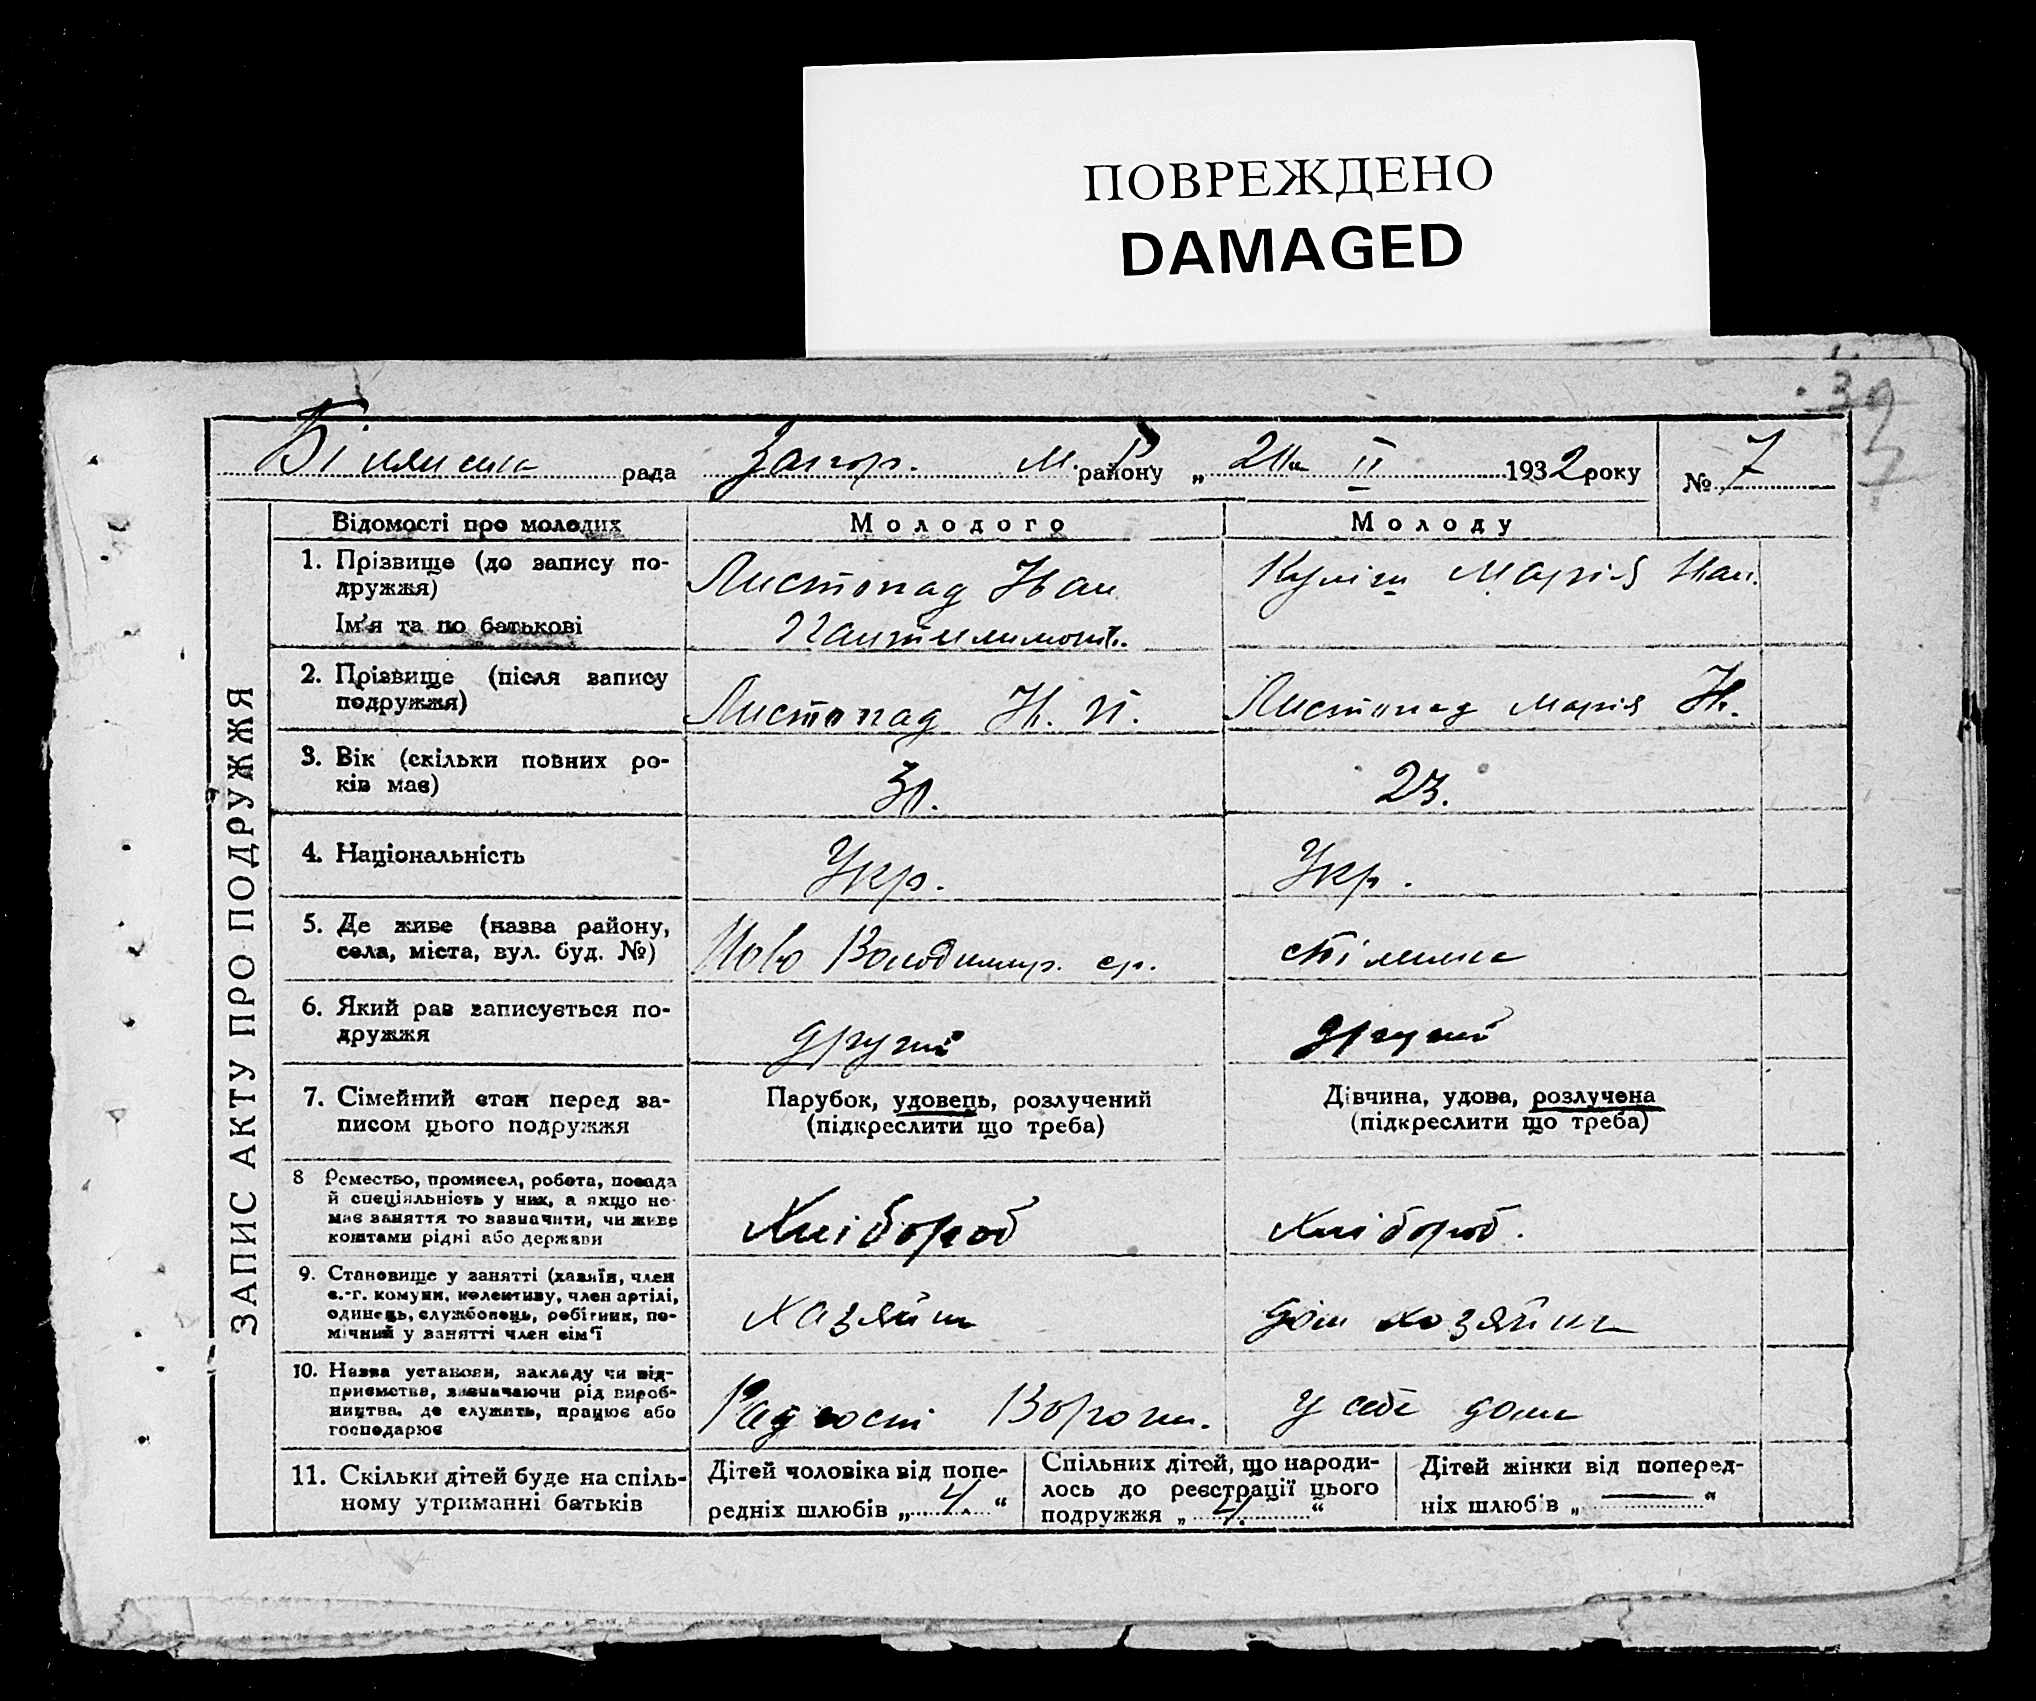 ПОВРЕЖДЕНО
DAMAGED
39
рада Запор. м. Р. району „ II 1932 року № 7
ЗАПИС АКТУ ПРО ПОДРУЖЖЯ
Відомості про молодих Молодого Молоду
1. Прізвище (до запису по-
дружжя)
Ім'я та по батькові
Листопад Іван
Пантилимонів.
Куліш Марія Іван.
2. Прізвище (після запису
подружжя)
Листопад И. П.
Листопад Марія И.
3. Вік (скільки повних ро-
ків має)
31.
23.
4. Національність
Укр.
Укр.
5. Де живе (назва району,
села, міста, вул. буд. №)
Ново Володимир. ср.
6. Який раз записується по-
дружжя
другий
другий
7. Сімейний стан перед за-
писом цього подружжя
Парубок, удовець, розлучений
(підкреслити що треба)
Дівчина, удова, розлучена
(підкреслити що треба)
8 Ремество, промисел, робота, посада
й спеціяльність у них, а якщо не-
має заняття то зазначити, чи живе
коштами рідні або держави
Хлібороб
Хлібороб.
9. Становище у занятті (хазяїн, член
с.-г. комуни, колективу, член артілі,
одинець, службовець, робітник, по-
мічний у занятті член сім'ї
хазяйин
дом хозяйка
10. Назва установи, закладу чи під-
приємства, зазначаючи рід вироб-
ництва, де служить, працює або
господарює
Радгосп
у себе дома
11. Скільки дітей буде на спіль-
ному утриманні батьків
Дітей чоловіка від попе-
редніх шлюбів „ 4. “
Спільних дітей, що народи-
лось до реєстрації цього
подружжя „ 4. “
Дітей жінки від поперед-
ніх шлюбів „ — “